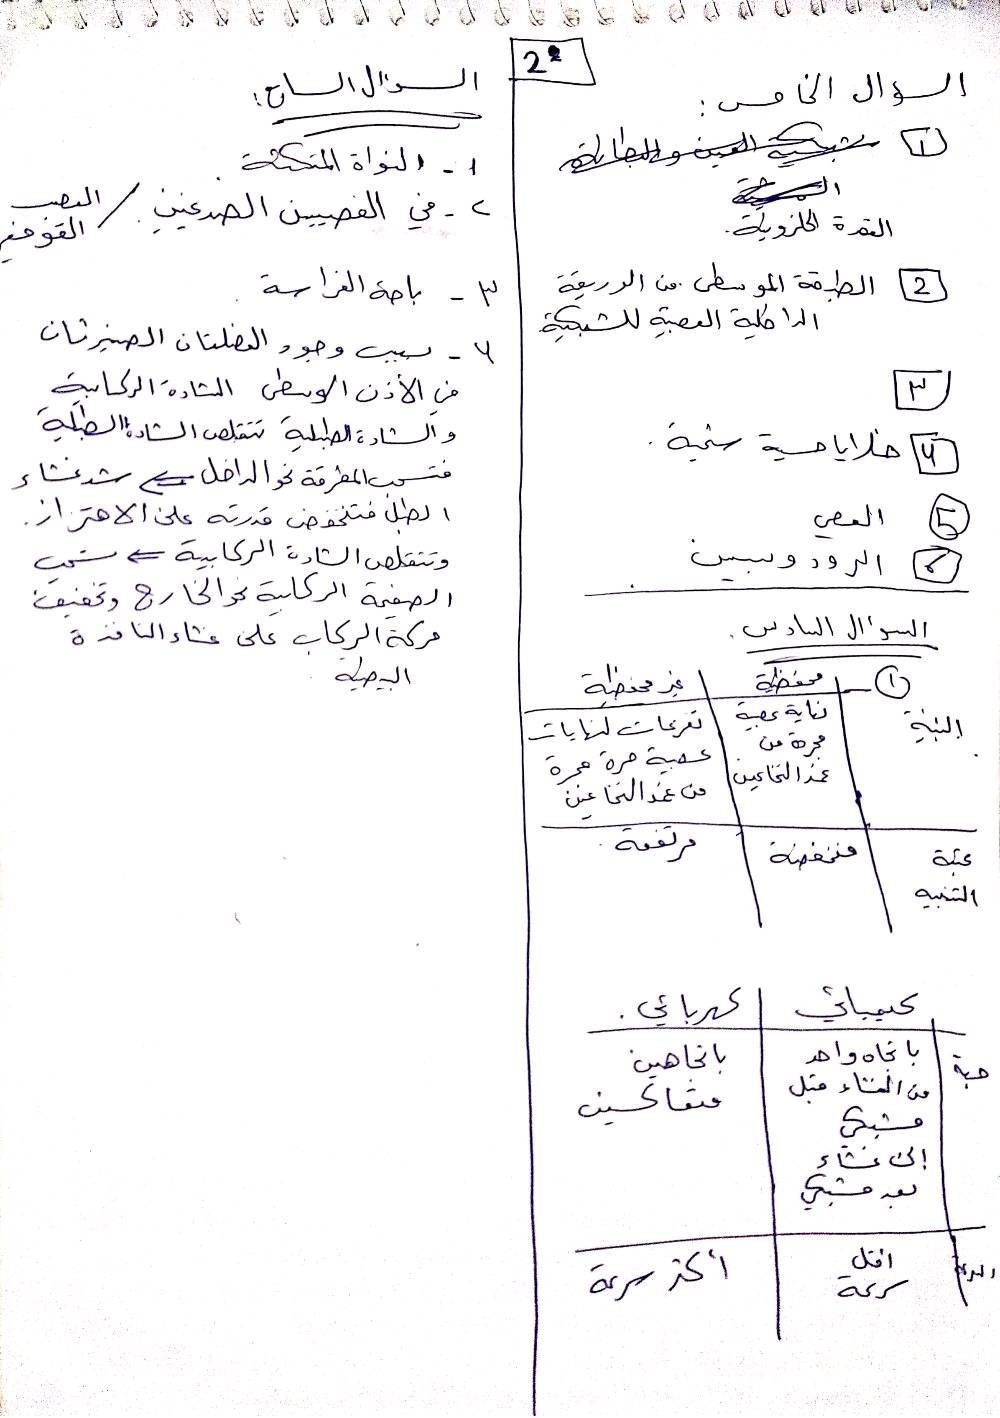 2
السؤال الخامس:
1
الغدة الحلزونية.
2 الطبقة الموسطى من الوريقة
الداخلية العصبية للشبكية
٣
٤ خلايا حسية شمية.
5 العصي
6 الرودوبسين
السؤال السادس.
١ - محفظية | غير محفظية
البنية
نهاية عصبية
مجردة من
غمد النخاعين
تفرعات لنهايات
عصبية حرة مجردة
من غمد النخاعين
عتبة
التنبيه
منخفضة
مرتفعة.
كيميائي | كهربائي.
جهة
باتجاه واحد
من الغشاء قبل
مشبكي
إلى غشاء
بعد مشبكي
باتجاهين
متعاكسين
السرعة
اقل
سرعة
أكثر سرعة
السؤال السابع:
١ - النواة المتكثفة.
٢ - في الفصيين الصدغيين. / العصب
القوقعي
٣ - باحة الفراسة.
٤ - بسبب وجود العضلتان الصغيرتان
في الأذن الوسطى الشادة الركابية
والشادة الطبلية تتقلص الشادة الطبلية
فتسحب المطرقة نحو الداخل ⇐ شد غشاء
الطبل فتنخفض قدرته على الاهتزاز.
وتتقلص الشادة الركابية ⇐ سحب
الصفيحة الركابية نحو الخارج وتخفيف
حركة الركاب على غشاء النافذة
البيضية.